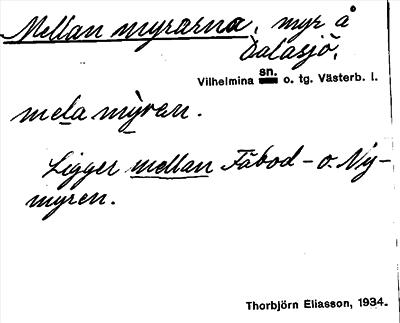 Mellan myrarna, myr å
Dalasjö.
Vilhelmina sn. o. tg. Västerb. l.
mela mỳren.
Ligger mellan Fäbod- o. Ny-
myren.
Thorbjörn Eliasson, 1934.